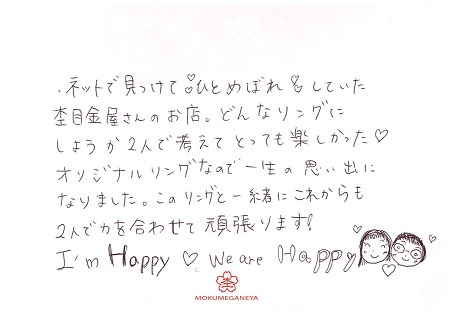 、ネットで見つけて♡ひとめぼれ♡していた
杢目金屋さんのお店。どんなリングに
しょうか2人で考えてとっても楽しかった♡
オリジナルリングなので一生の思い出に
なりました。このリングと一緒にこれからも
2人で力を合わせて頑張ります!
I'm Happy ♡ We are Happy
MOKUMEGANEYA